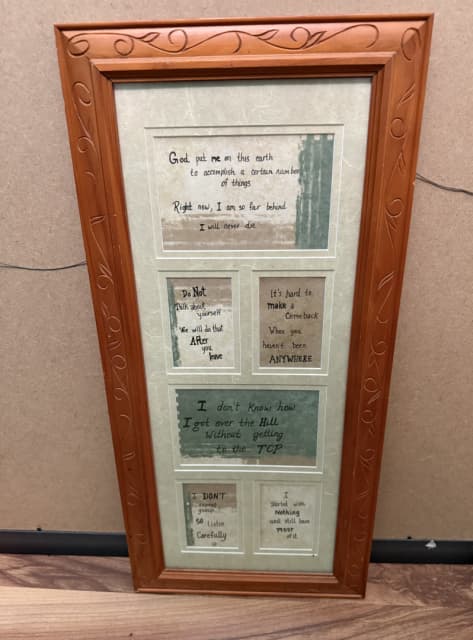 God put me on this earth
to accomplish a certain number
of things
Right now, I am so far behind
I will never die
Do Not
Talk about
yourself
We will do that
AFter
you
leave
It's hard to
make a
Comeback
When you
haven't been
ANYWHERE
I don't know how
I got over the Hill
Without getting
to the TOP
I DON'T
repeat
gossip
so Listen
Carefully
I
Started with
Nothing
and still have
most
of it